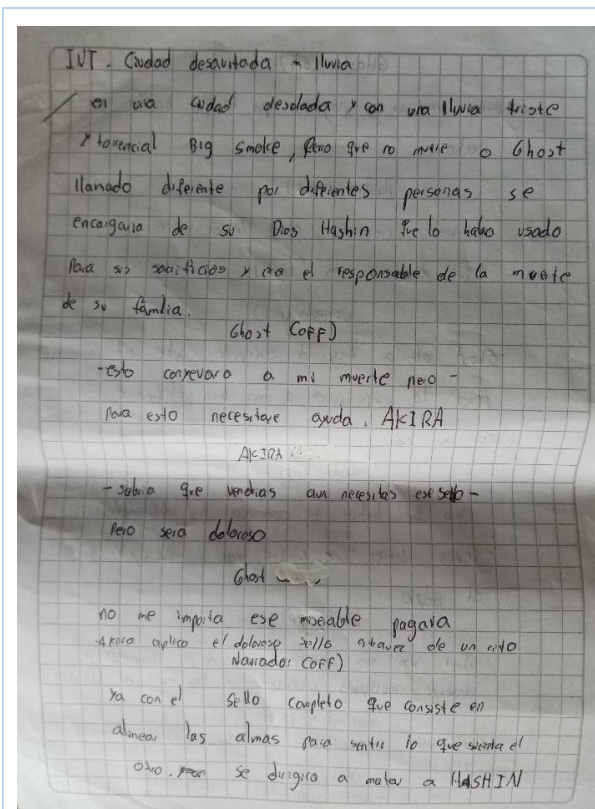 INT. Ciudad desavitada + lluvia
en una ciudad desolada y con una lluvia triste
y torrencial Big smoke, pero que no muere o Ghost
llamado diferente por diferentes personas se
encargaria de su Dios Hashin que lo habia usado
Para sus sacrificios y era el responsable de la muerte
de su familia.
Ghost (OFF)
-esto conyevara a mi muerte pero -
Para esto necesitare ayuda. AKIRA
AKIRA
- sabria que vendrias aun necesitas ese sello -
Pero sera doloroso
Ghost
no me importa ese miserable pagara
Akira aplico el doloroso sello atavez de un rito
Narrador (OFF)
Ya con el sello completo que consiste en
alinear las almas para sentir lo que sienta el
otro. se dirigira a matar a HASHIN